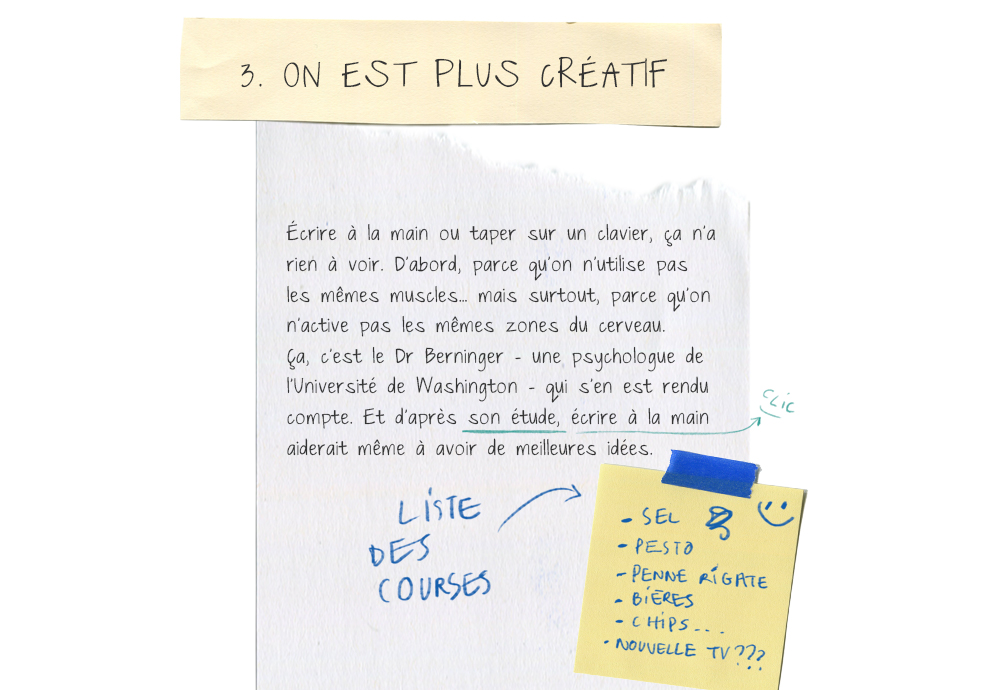 3. ON EST PLUS CRÉATIF
Écrire à la main ou taper sur un clavier, ça n'a
rien à voir. D'abord, parce qu'on n'utilise pas
les mêmes muscles... mais surtout, parce qu'on
n'active pas les mêmes zones du cerveau.
Ça, c'est le Dr Berninger - une psychologue de
l'Université de Washington - qui s'en est rendu
compte. Et d'après son étude, écrire à la main
aiderait même à avoir de meilleures idées.
CLIC
LISTE
DES
COURSES
- SEL
- PESTO
- PENNE RIGATE
- BIÈRES
- CHIPS...
- NOUVELLE TV???